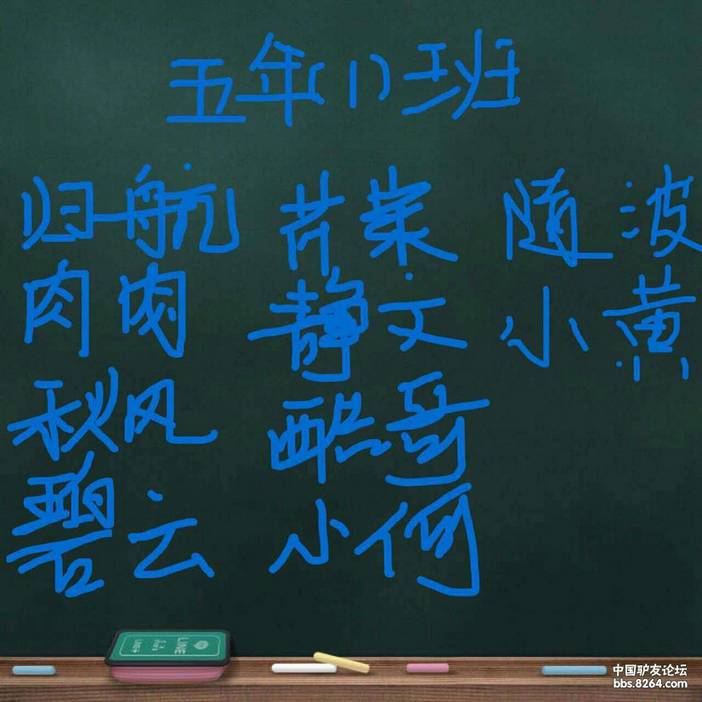 五年(1)班
归航 芹菜 随波
肉肉 静文 小黄
秋风 酷哥
碧云 小何
LINE
中国驴友论坛
bbs.8264.com